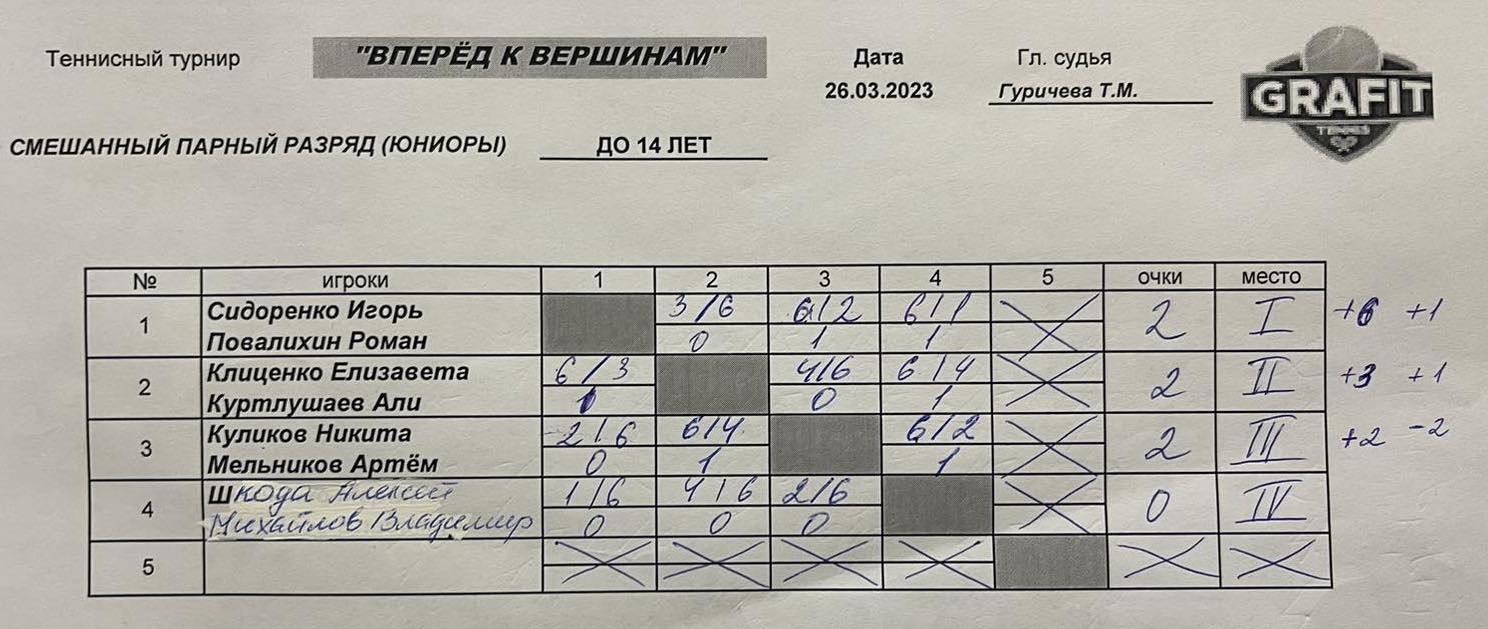 Теннисный турнир "ВПЕРЁД К ВЕРШИНАМ" Дата Гл. судья
26.03.2023 Гуричева Т.М.
GRAFIT
TENNIS
СМЕШАННЫЙ ПАРНЫЙ РАЗРЯД (ЮНИОРЫ) ДО 14 ЛЕТ
№ игроки 1 2 3 4 5 очки место
1 Сидоренко Игорь 3/6 6/2 6/1 2 I +6 +1
Повалихин Роман 0 1 1
2 Клиценко Елизавета 6/3 4/6 6/4 2 II +3 +1
Куртлушаев Али 1 0 1
3 Куликов Никита 2/6 6/4 6/2 2 III +2 -2
Мельников Артём 0 1 1
4 Шкода Алексей 1/6 4/6 2/6 0 IV
Михайлов Владимир 0 0 0
5